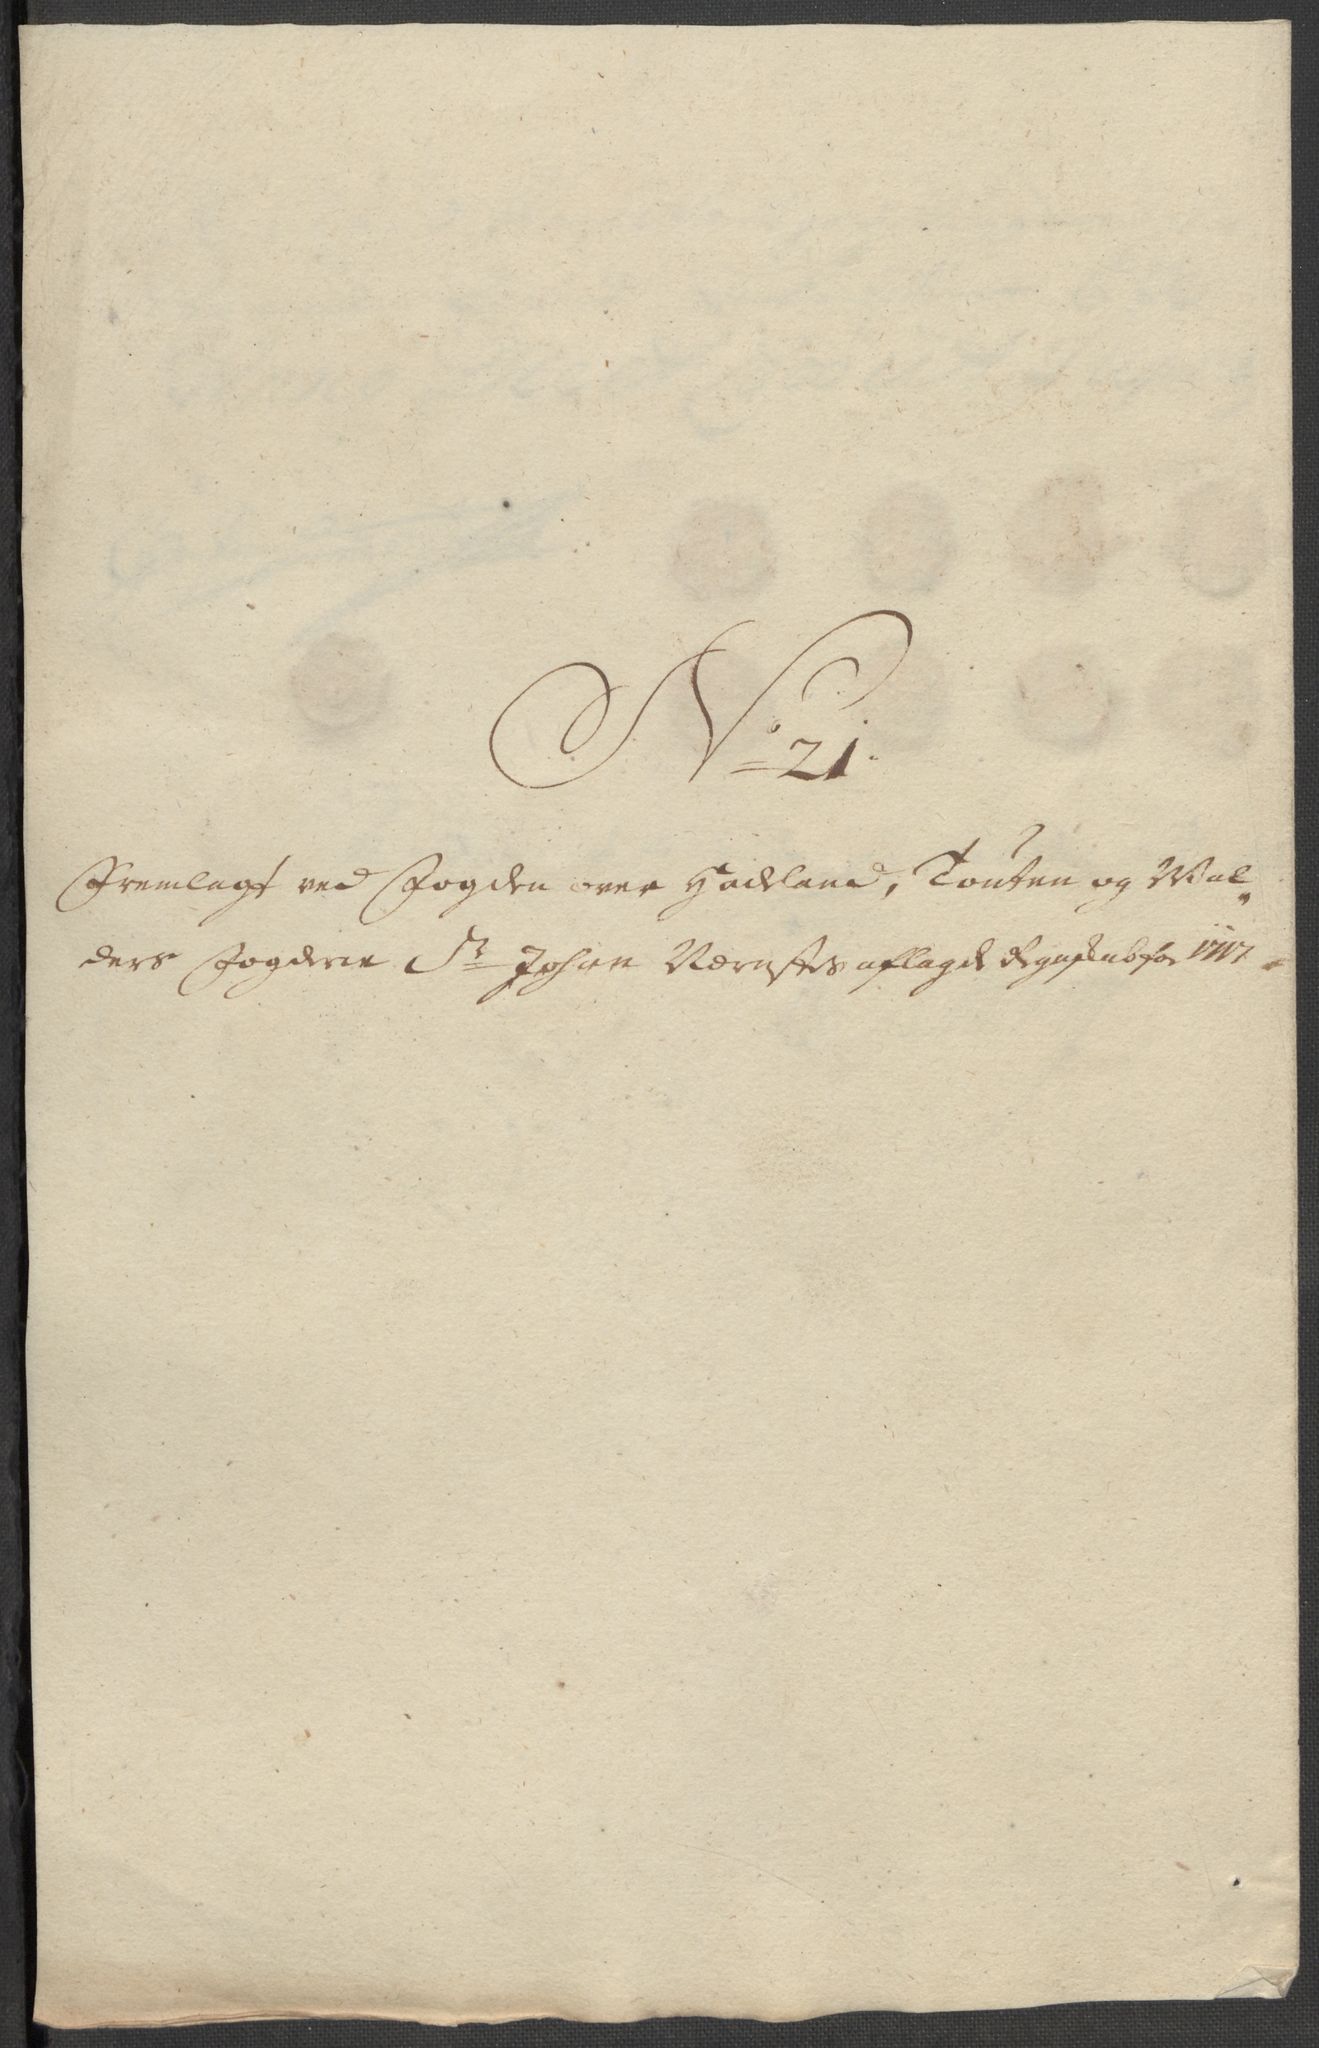 No 21.
Fremlagt ved Fogden over Hadeland, Toten og Wal„
ders Fogderie Sr Johan Nærnstes aflagde Regenskab for 1717